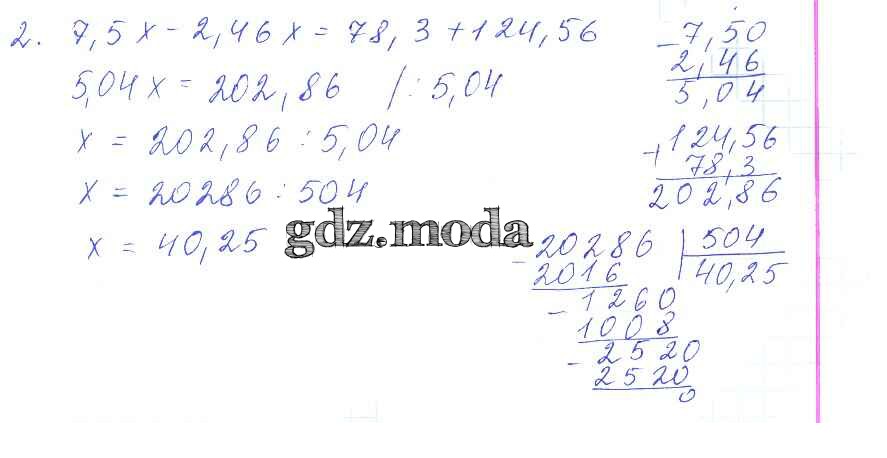 2. 7,5x - 2,46x = 78,3 + 124,56
5,04x = 202,86 /: 5,04
x = 202,86 : 5,04
x = 20286 : 504
x = 40,25
gdz.moda
- 7,50
2,46
5,04
+ 124,56
78,3
202,86
- 20286 | 504
2016 40,25
- 1260
1008
- 2520
2520
0